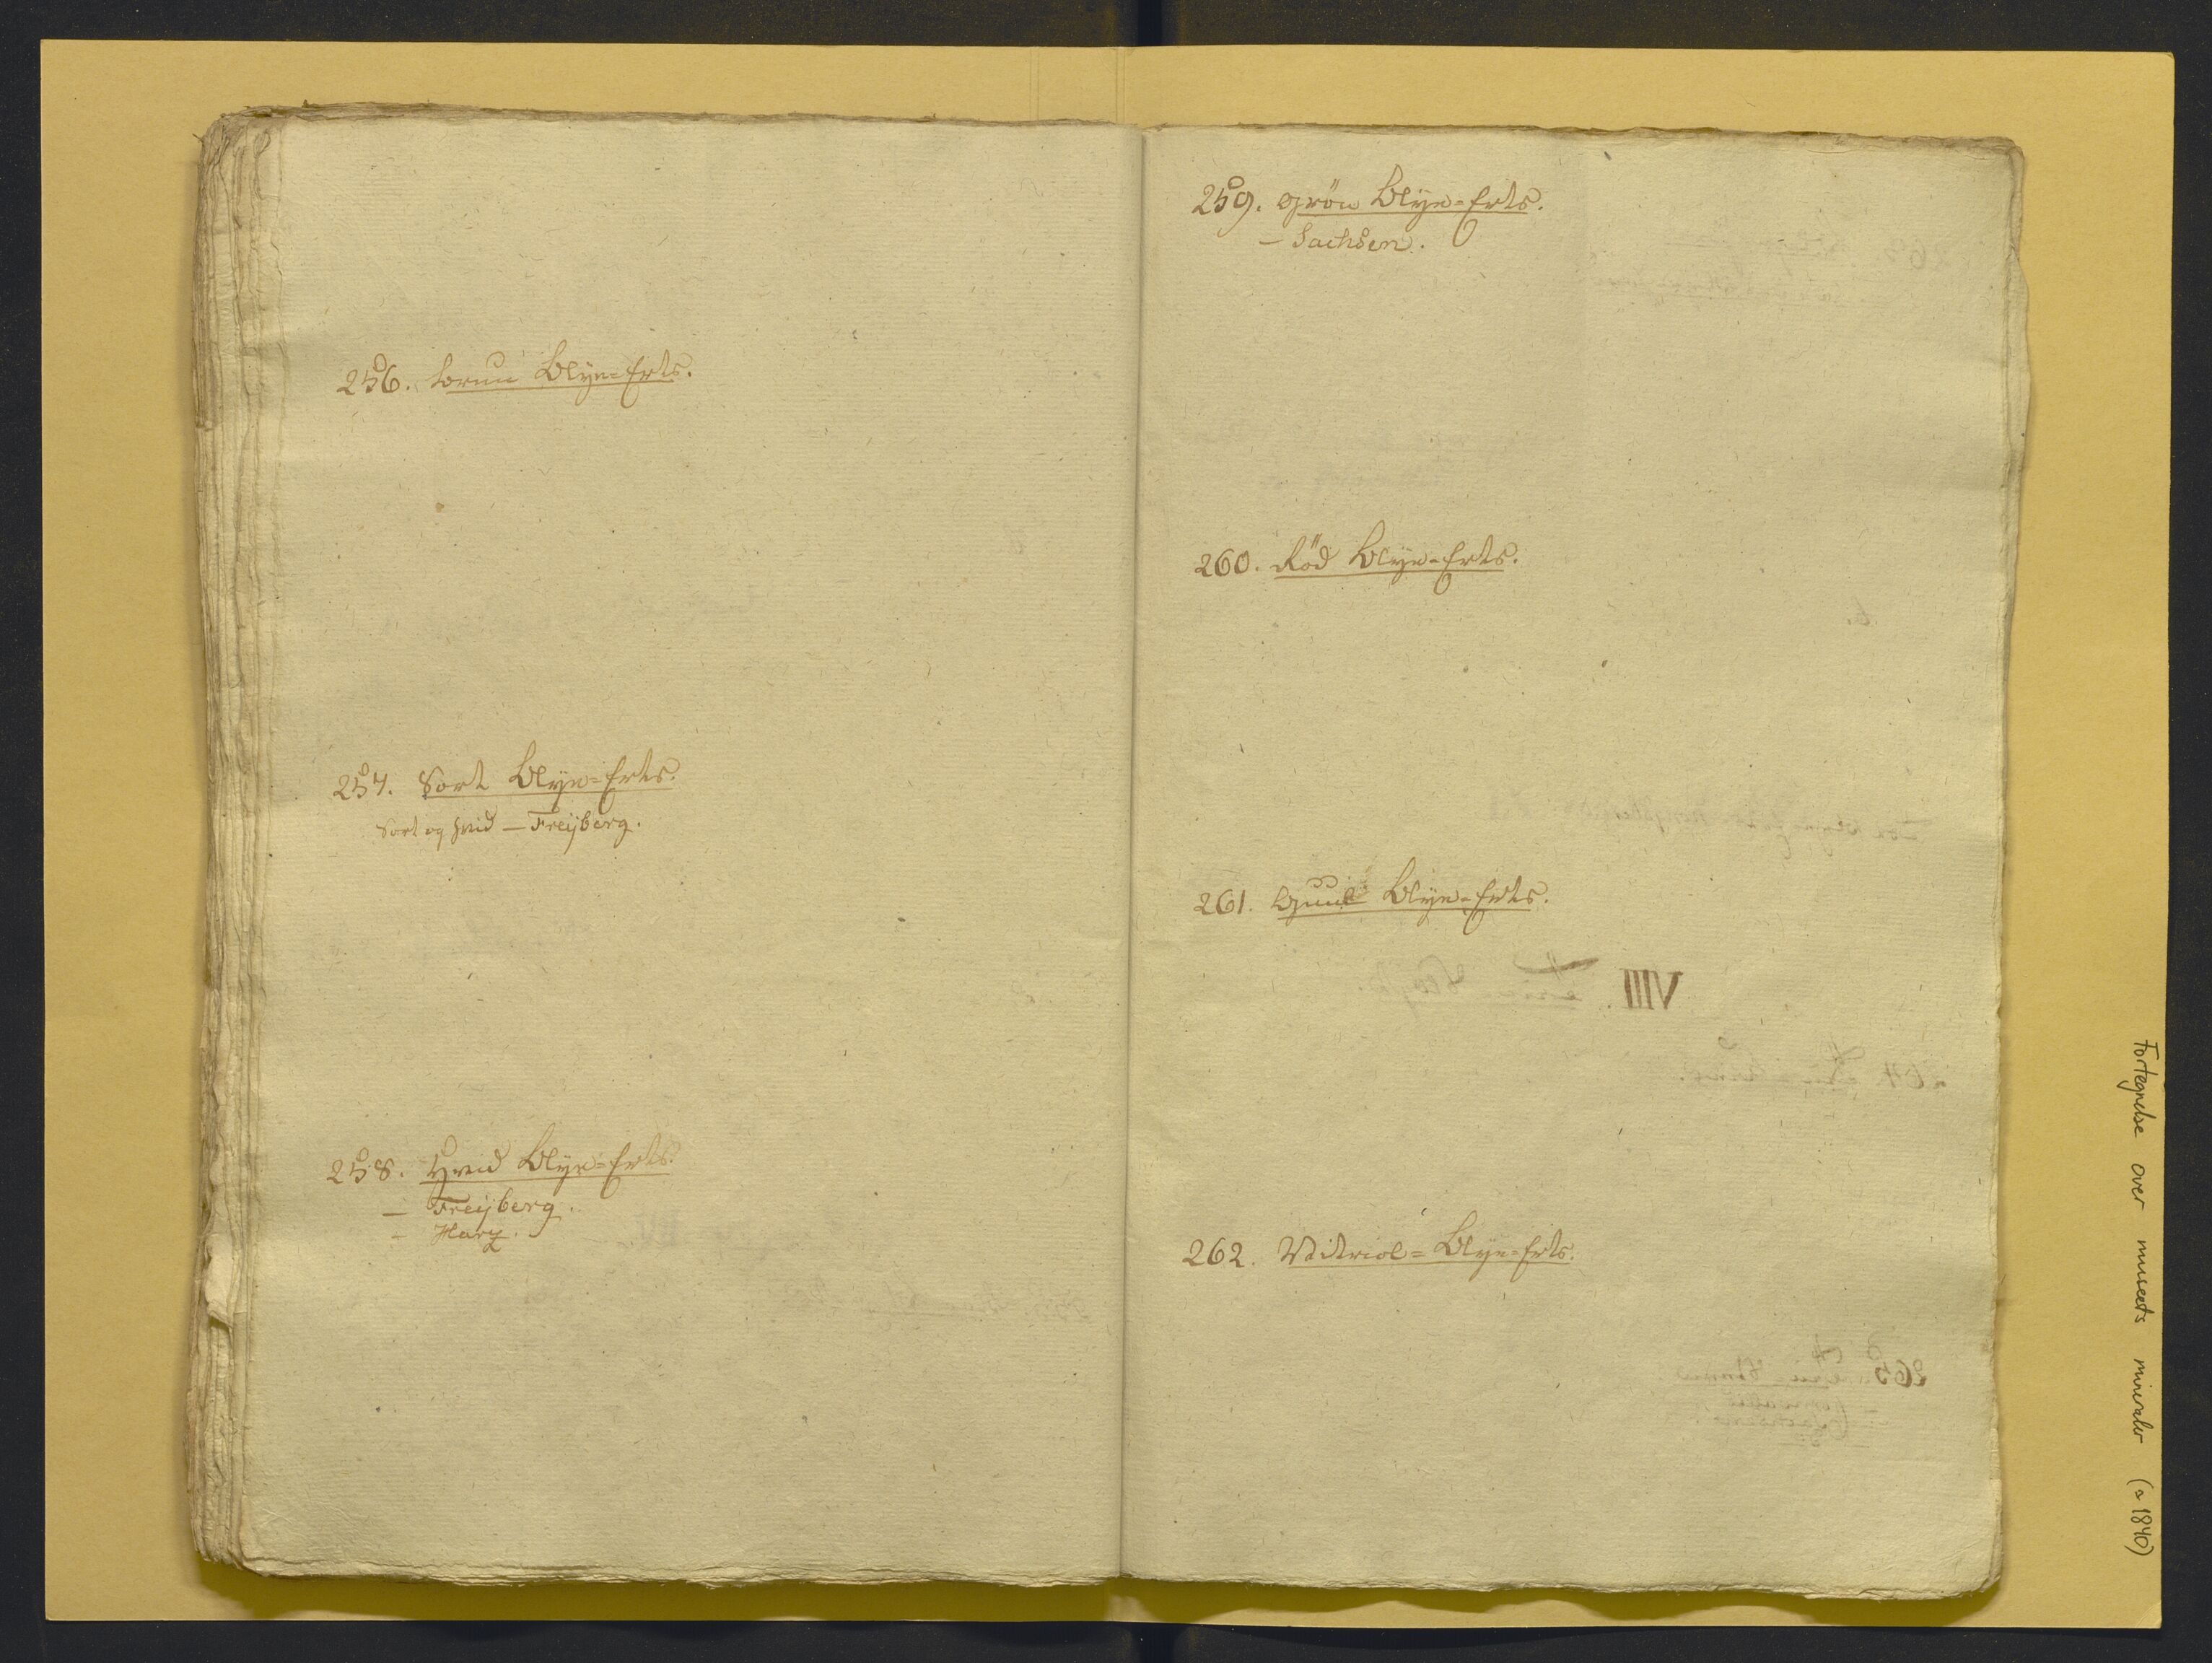 256. bruun Blÿe-Erts.
257. Sort Blÿe-Erts.
Sort og hvid — Freÿberg.
258. Hvid Blÿe-Erts.
— Freÿberg.
— Harz.
259. Grön Blÿe-Erts.
— Sachsen.
260. Röd Blÿe-Erts.
261. Guul Blÿe-Erts.
262. Vitriol-Blÿe-Erts.
Fortegnelse over museets mineraler (a 1840)